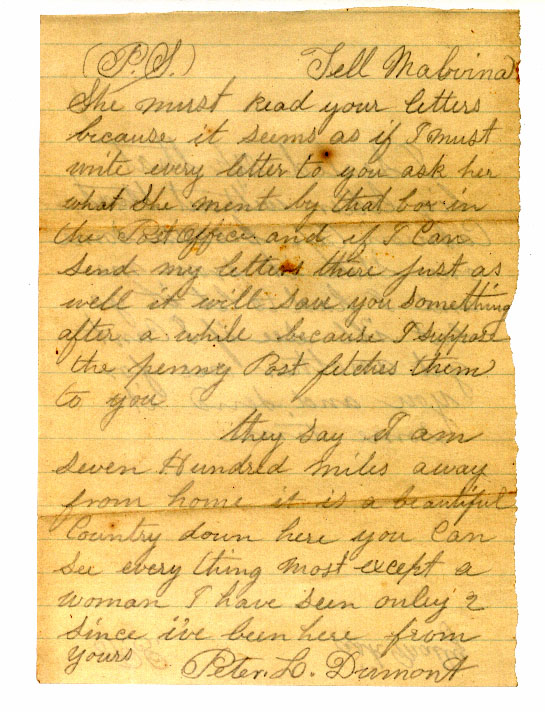 (P.S.) Tell Malvina
She murst read your letters
because it seems as if I must
write every letter to you ask her
what She ment by that box in
the Post Office and if I Can
Send my letters there just as
well it will save you something
after a while because I suppose
the penny Post fetches them
to you
they say I am
seven Hundred miles away
from home it is a beautiful
Country down here you Can
See every thing most except a
woman I have seen onley 2
since i've been here from
yours Peter. L. Dumont